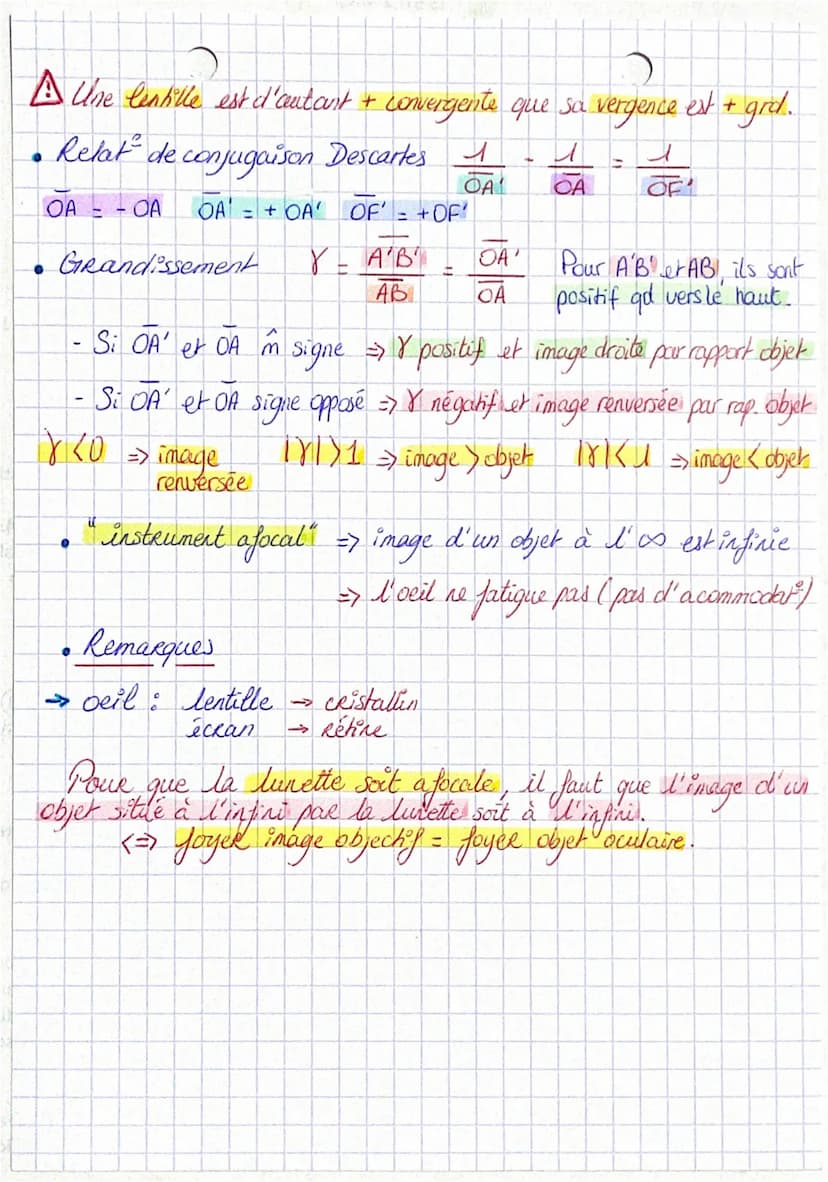 ⚠ Une lentille est d'autant + convergente que sa vergence est + grd.
• Relat° de conjugaison Descartes 1/O̅A̅' - 1/O̅A̅ = 1/O̅F̅'
O̅A̅ = - OA O̅A̅' = + OA' O̅F̅' = + OF'
• Grandissement γ = A̅'B̅'/A̅B̅ = O̅A̅'/O̅A̅ Pour A'B' et AB, ils sont
positif qd vers le haut.
- Si O̅A̅' et O̅A̅ m̂ signe => γ positif et image droite par rapport objet
- Si O̅A̅' et O̅A̅ signe opposé => γ négatif et image renversée par rap. objet
γ < 0 => image renversée |γ| > 1 => image > objet |γ| < 1 => image < objet
• "instrument afocal" => image d'un objet à l'∞ est infinie
=> l'oeil ne fatigue pas (pas d'acommodat°)
• Remarques
→ oeil : lentille → cristallin
écran → rétine
Pour que la lunette soit afocale, il faut que l'image d'un
objet situé à l'infini par la lunette soit à l'infini.
<=> foyer image objectif = foyer objet oculaire.